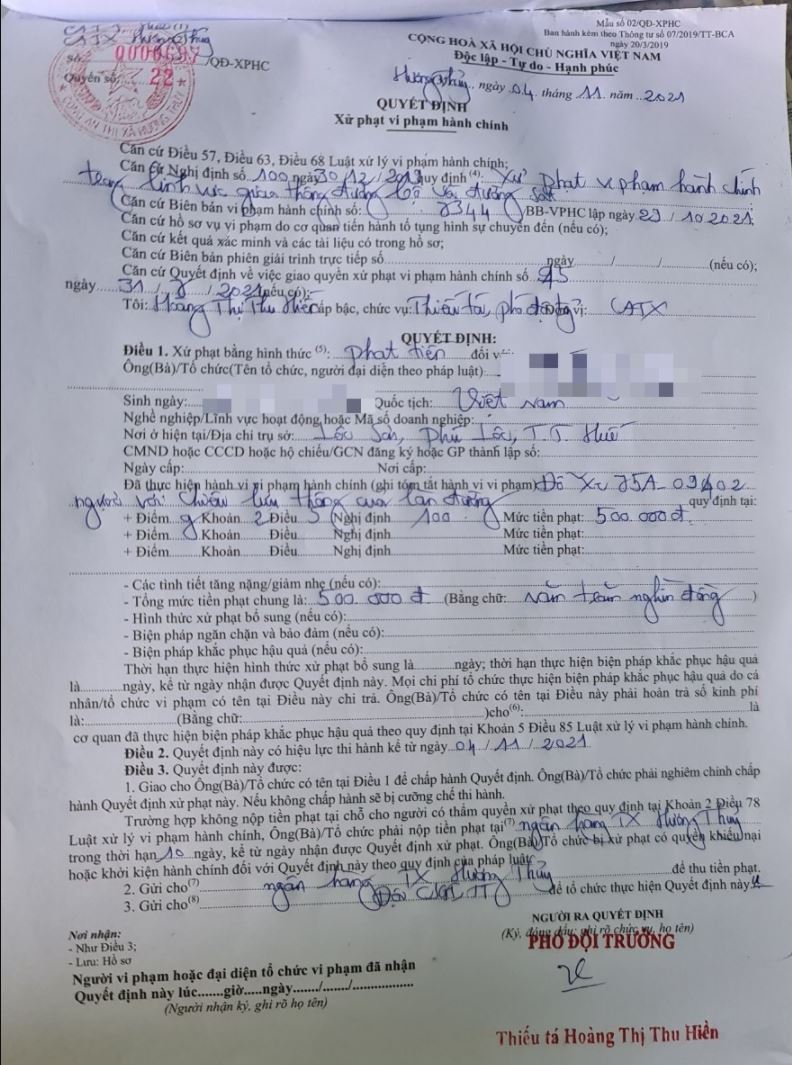 Mẫu số 02/QĐ-XPHC
Ban hành kèm theo Thông tư số 07/2019/TT-BCA
ngày 20/3/2019
CATX Hương Thủy
CỘNG HOÀ XÃ HỘI CHỦ NGHĨA VIỆT NAM
Số: /QĐ-XPHC
Độc lập - Tự do - Hạnh phúc
Quyển số: 22
CÔNG AN THỊ XÃ HƯƠNG THỦY
Hương Thủy, ngày 04 tháng 11 năm 2021
QUYẾT ĐỊNH
Xử phạt vi phạm hành chính
Căn cứ Điều 57, Điều 63, Điều 68 Luật xử lý vi phạm hành chính;
Căn cứ Nghị định số 100 ngày 30/12/2019 quy định (4): xử phạt vi phạm hành chính
trong lĩnh vực giao thông đường bộ và đường sắt
Căn cứ Biên bản vi phạm hành chính số: 2344 /BB-VPHC lập ngày 29/10/2021;
Căn cứ hồ sơ vụ vi phạm do cơ quan tiến hành tố tụng hình sự chuyển đến (nếu có);
Căn cứ kết quả xác minh và các tài liệu có trong hồ sơ;
Căn cứ Biên bản phiên giải trình trực tiếp số ngày / / (nếu có);
Căn cứ Quyết định về việc giao quyền xử phạt vi phạm hành chính số
ngày 31/8/2021 (nếu có);
Tôi: Hoàng Thị Thu Hiền Cấp bậc, chức vụ: Thiếu tá, phó đội Đơn vị: CATX
QUYẾT ĐỊNH:
Điều 1. Xử phạt bằng hình thức (5): phạt tiền đối với:
Ông(Bà)/Tổ chức(Tên tổ chức, người đại diện theo pháp luật):
Sinh ngày: Quốc tịch: Việt Nam
Nghề nghiệp/Lĩnh vực hoạt động hoặc Mã số doanh nghiệp:
Nơi ở hiện tại/Địa chỉ trụ sở: Phú Lộc, T.T. Huế
CMND hoặc CCCD hoặc hộ chiếu/GCN đăng ký hoặc GP thành lập số:
Ngày cấp: Nơi cấp:
Đã thực hiện hành vi vi phạm hành chính (ghi tóm tắt hành vi vi phạm): Đỗ xe
ngược với chiều lưu thông của làn đường quy định tại:
+ Điểm g Khoản 2 Điều 5 Nghị định 100 Mức tiền phạt: 500.000đ
+ Điểm Khoản Điều Nghị định Mức tiền phạt:
+ Điểm Khoản Điều Nghị định Mức tiền phạt:
- Các tình tiết tăng nặng/giảm nhẹ (nếu có):
- Tổng mức tiền phạt chung là: 500.000đ (Bằng chữ: năm trăm nghìn đồng )
- Hình thức xử phạt bổ sung (nếu có):
- Biện pháp ngăn chặn và bảo đảm (nếu có):
- Biện pháp khắc phục hậu quả (nếu có):
Thời hạn thực hiện hình thức xử phạt bổ sung là ngày; thời hạn thực hiện biện pháp khắc phục hậu quả
là ngày, kể từ ngày nhận được Quyết định này. Mọi chi phí tổ chức thực hiện biện pháp khắc phục hậu quả do cá
nhân/tổ chức vi phạm có tên tại Điều này chi trả. Ông(Bà)/Tổ chức có tên tại Điều này phải hoàn trả số kinh phí
là: (Bằng chữ: )cho(6): là
cơ quan đã thực hiện biện pháp khắc phục hậu quả theo quy định tại Khoản 5 Điều 85 Luật xử lý vi phạm hành chính.
Điều 2. Quyết định này có hiệu lực thi hành kể từ ngày 04/11/2021
Điều 3. Quyết định này được:
1. Giao cho Ông(Bà)/Tổ chức có tên tại Điều 1 để chấp hành Quyết định. Ông(Bà)/Tổ chức phải nghiêm chỉnh chấp
hành Quyết định xử phạt này. Nếu không chấp hành sẽ bị cưỡng chế thi hành.
Trường hợp không nộp tiền phạt tại chỗ cho người có thẩm quyền xử phạt theo quy định tại Khoản 2 Điều 78
Luật xử lý vi phạm hành chính, Ông(Bà)/Tổ chức phải nộp tiền phạt tại(7) ngân hàng TX Hương Thủy
trong thời hạn 10 ngày, kể từ ngày nhận được Quyết định xử phạt. Ông(Bà)/Tổ chức bị xử phạt có quyền khiếu nại
hoặc khởi kiện hành chính đối với Quyết định này theo quy định của pháp luật.
2. Gửi cho(7) ngân hàng TX Hương Thủy để thu tiền phạt.
3. Gửi cho(8) Đội để tổ chức thực hiện Quyết định này.
NGƯỜI RA QUYẾT ĐỊNH
(Ký, đóng dấu; ghi rõ chức vụ, họ tên)
PHÓ ĐỘI TRƯỞNG
Nơi nhận:
- Như Điều 3;
- Lưu: Hồ sơ
Người vi phạm hoặc đại diện tổ chức vi phạm đã nhận
Quyết định này lúc.......giờ.....ngày......./......./...............
(Người nhận ký, ghi rõ họ tên)
Thiếu tá Hoàng Thị Thu Hiền